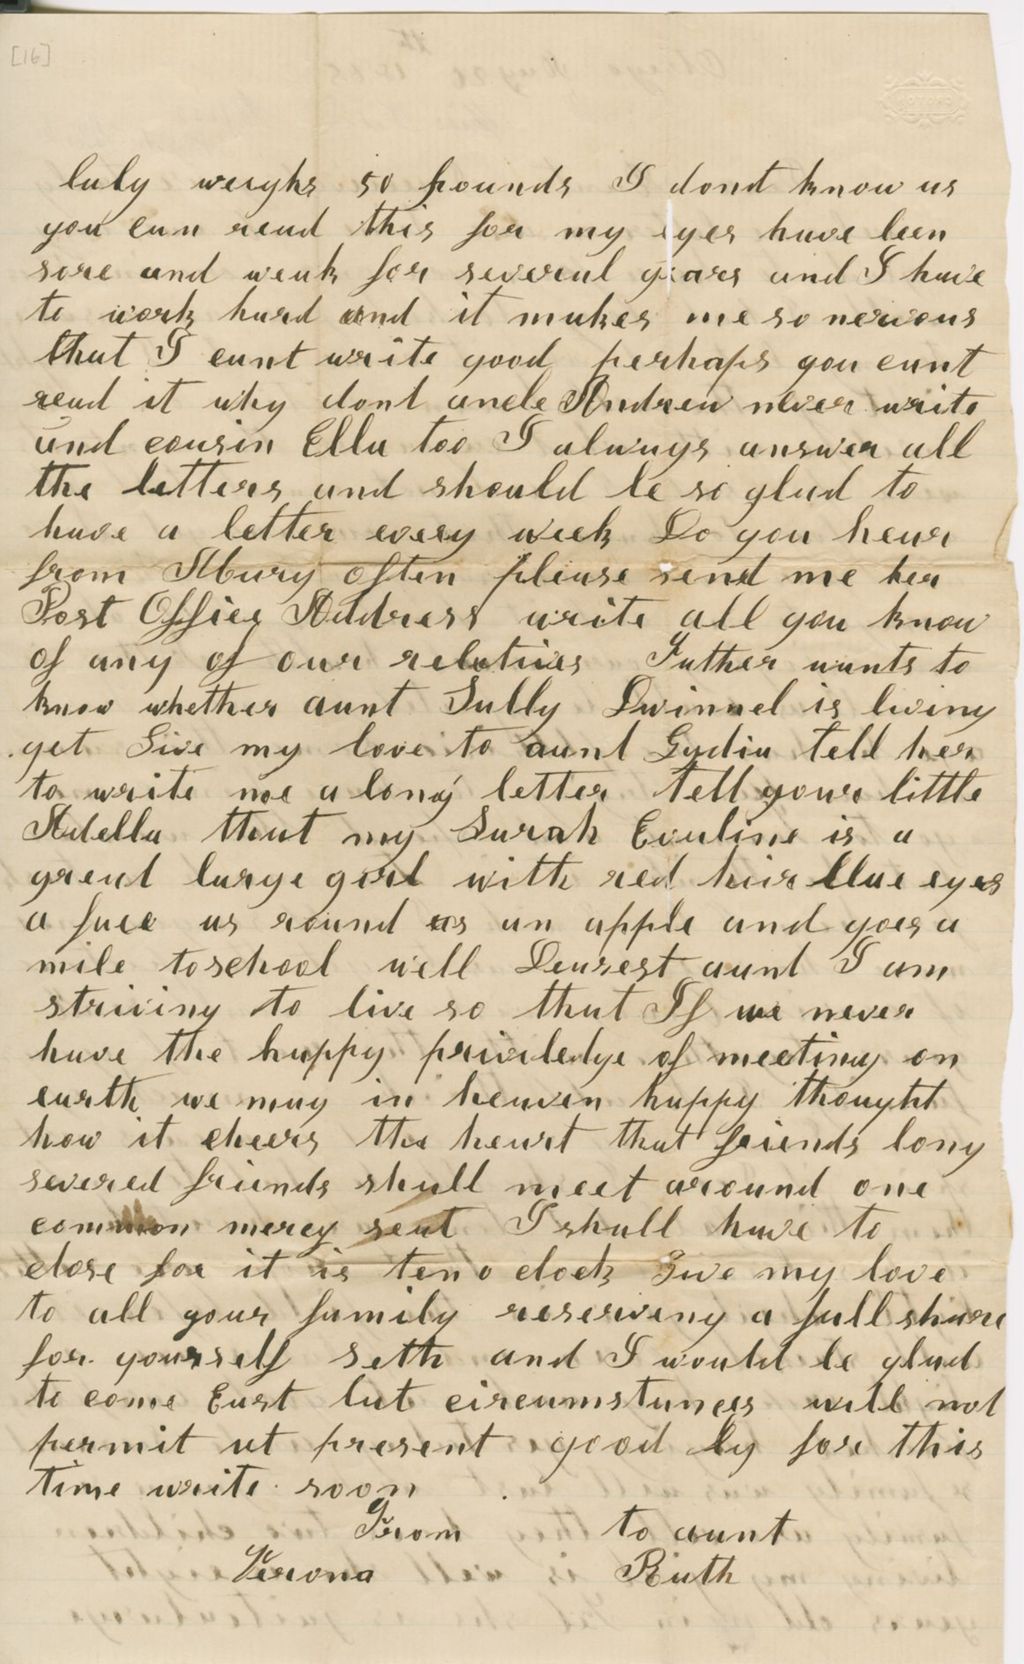 [16]
baby weighs 50 pounds I dont know as
you can read this for my eyes have been
sore and weak for several years and I have
to work hard and it makes me so nervous
that I cant write good perhaps you cant
read it why dont uncle Andrew never write
and cousin Ella too I always answer all
the letters and should be so glad to
have a letter every week Do you hear
from Mary often please send me her
Post Office Address write all you know
of any of our relatives Father wants to
know whether aunt Sally Dwinnel is living
yet Give my love to aunt Lydia tell her
to write me a long letter tell your little
Adella that my Sarah Evaline is a
great large girl with red hair blue eyes
a face as round as an apple and goes a
mile to school well Dearest aunt I am
striving to live so that If we never
have the happy priviledge of meeting on
earth we may in heaven happy thought
how it cheers the heart that friends long
severed friends shall meet around one
common mercy seat I shall have to
close for it is ten o clock Give my love
to all your family reserving a full share
for yourself Seth and I would be glad
to come East but circumstances will not
permit at present good by for this
time write soon
From to aunt
Verona Ruth